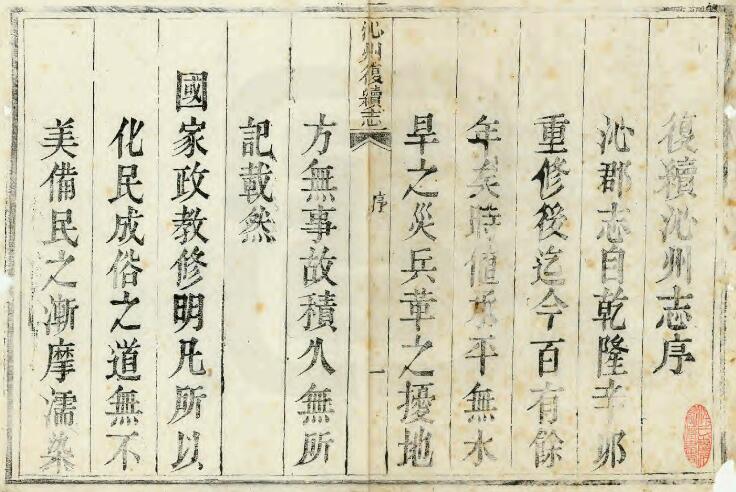 復續沁州志序
沁郡志自乾隆辛卯
重修後迄今百有餘
年矣時值承平無水
旱之災兵革之擾地
沁州復續志
序
一
方無事故積久無所
記載然
國家政教修明凡所以
化民成俗之道無不
美備民之漸摩濡染